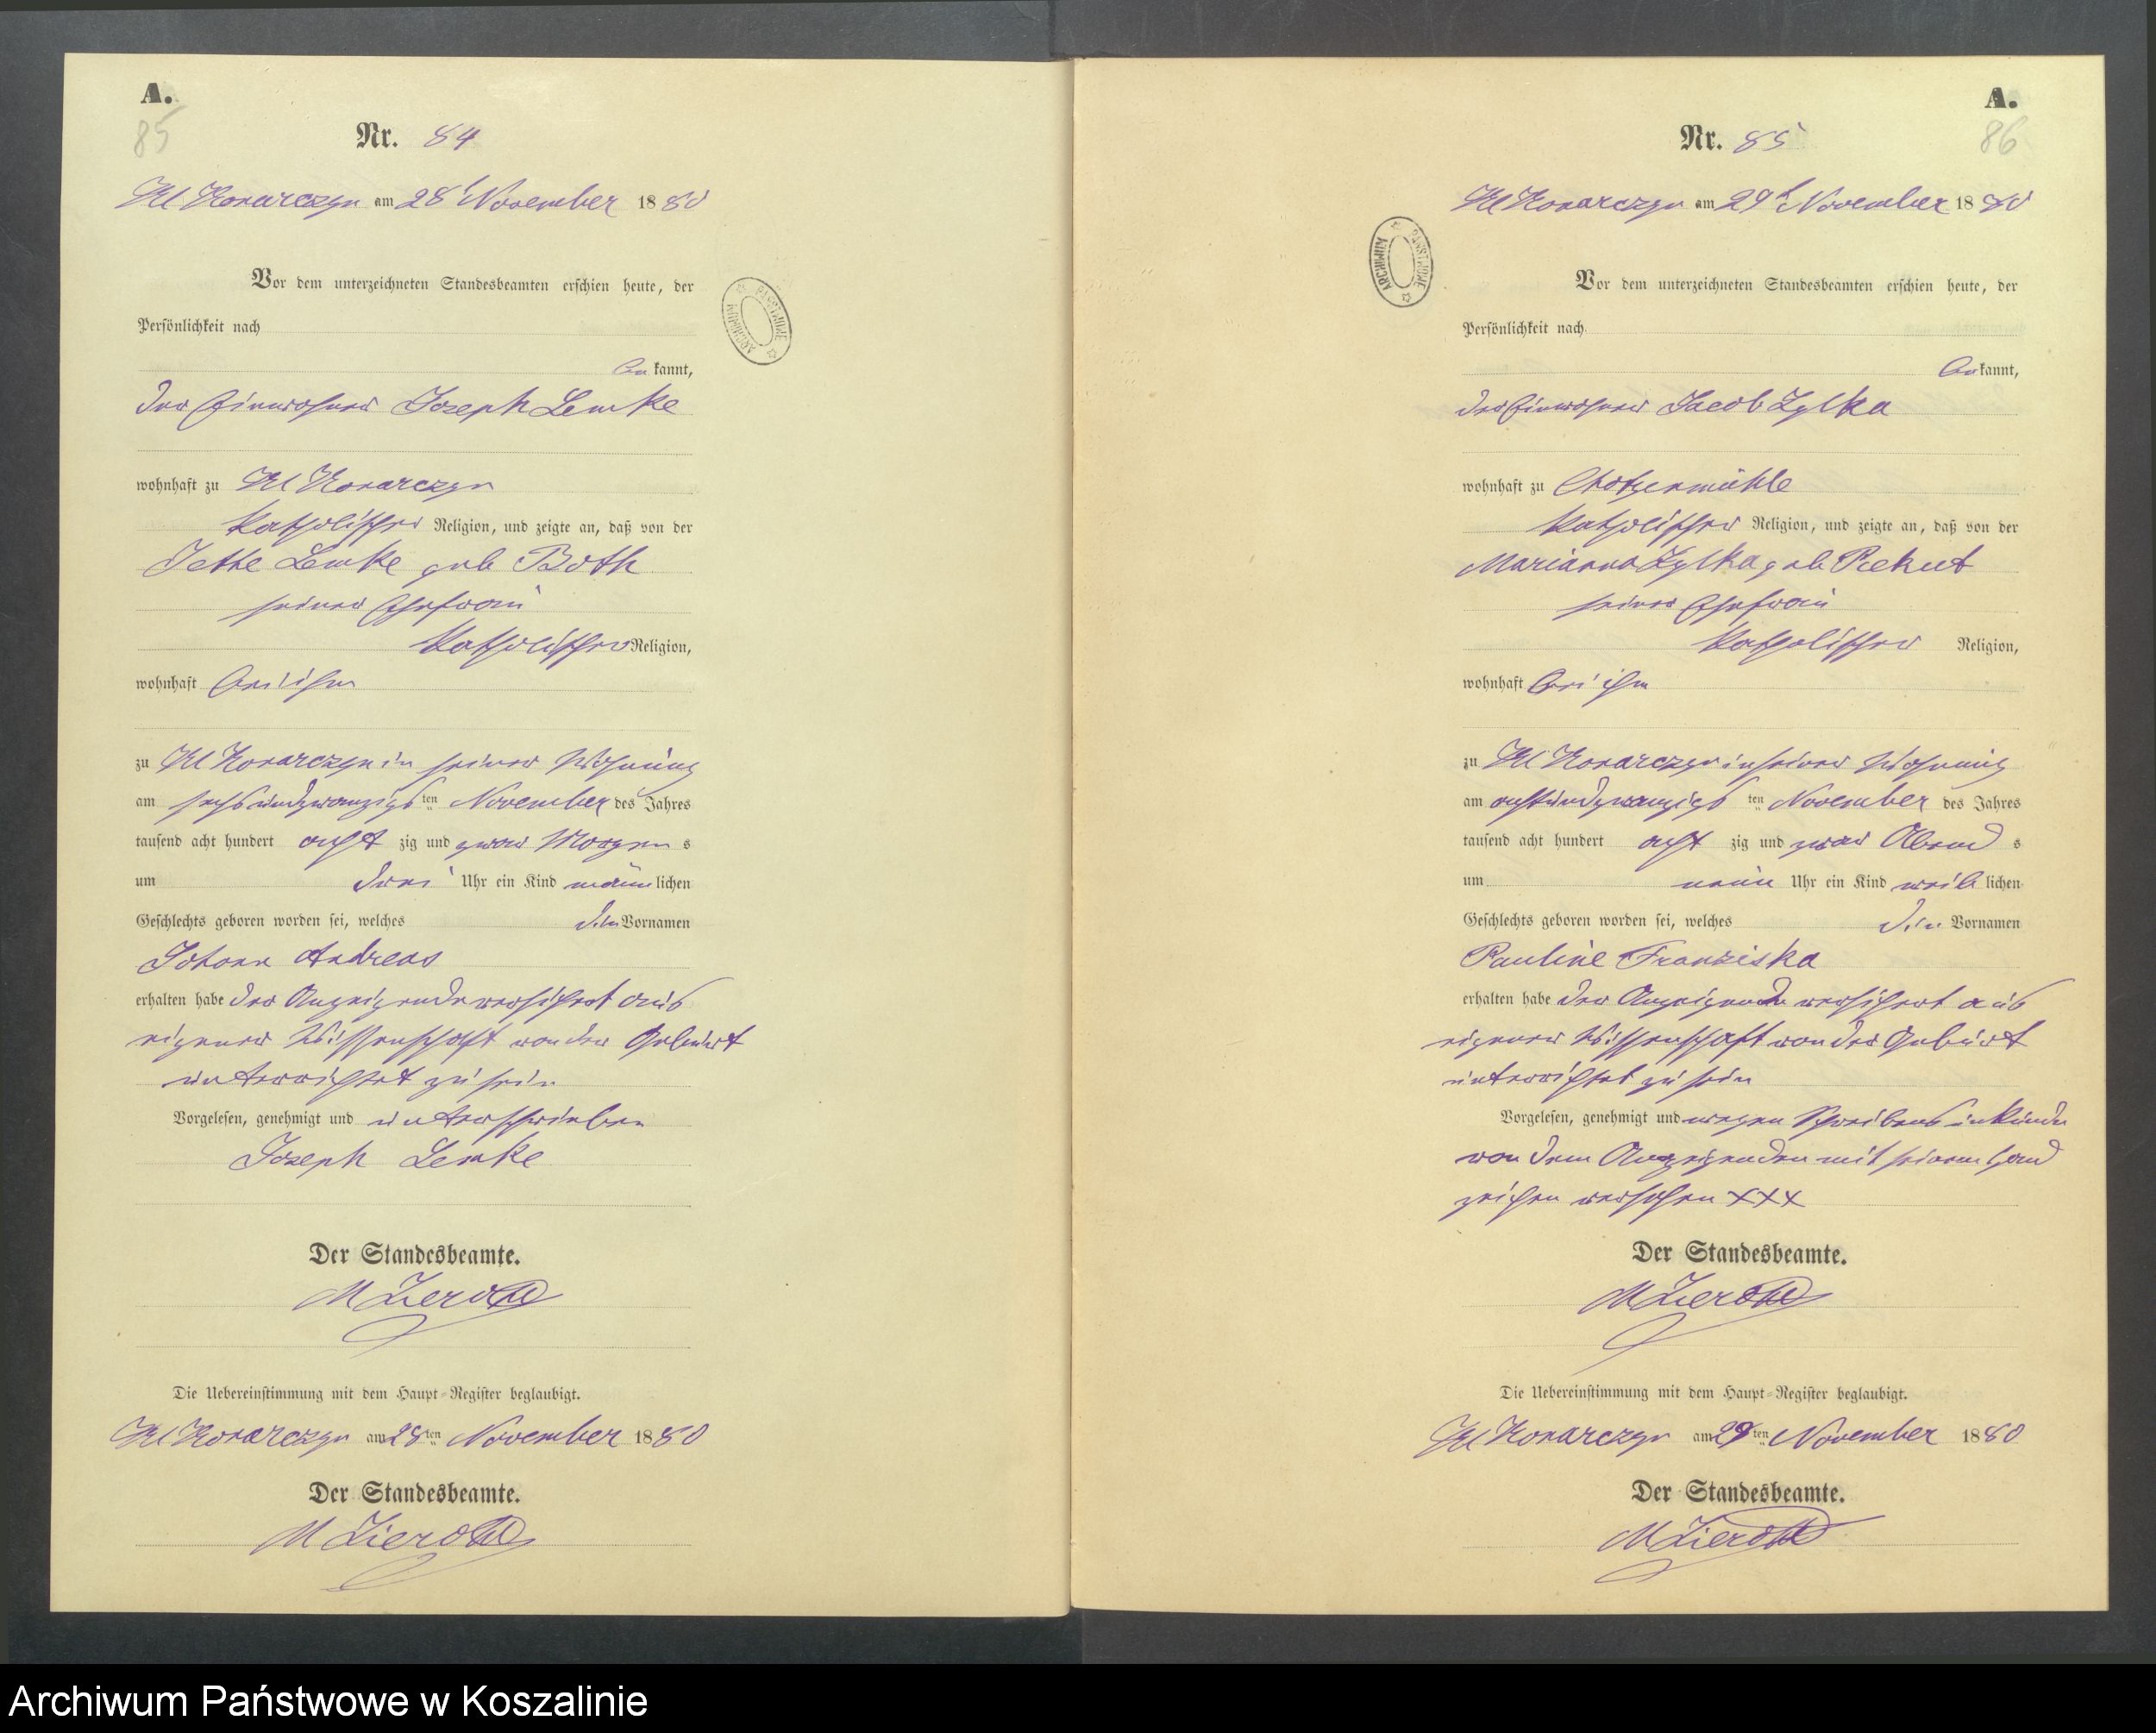 A.
85
Nr. 84
Kl Konarczyn am 28t November 1880
Vor dem unterzeichneten Standesbeamten erschien heute, der
Persönlichkeit nach
bekannt,
der Einwohner Joseph Lemke
wohnhaft zu Kl Konarczyn
katholischer Religion, und zeigte an, daß von der
Jette Lemke geb Both
seiner Ehefrau
katholischer Religion,
wohnhaft bei ihm
zu Kl Konarczyn in seiner Wohnung
am sechsundzwanzigsten November des Jahres
tausend acht hundert achtzig und zwar Morgens
um drei Uhr ein Kind männlichen
Geschlechts geboren worden sei, welches die Vornamen
Johann Andreas
erhalten habe der Anzeigende versichert aus
eigener Wissenschaft von der Geburt
unterrichtet zu sein
Vorgelesen, genehmigt und unterschrieben
Joseph Lemke
Der Standesbeamte.
M Zieroth
Die Uebereinstimmung mit dem Haupt-Register beglaubigt.
Kl Konarczyn am 28ten November 1880
Der Standesbeamte.
M Zieroth
ARCHIWUM PAŃSTWOWE
A.
86
Nr. 85
Kl Konarczyn am 29t November 1880
Vor dem unterzeichneten Standesbeamten erschien heute, der
Persönlichkeit nach
bekannt,
der Einwohner Jacob Zylka
wohnhaft zu Chotzenmühle
katholischer Religion, und zeigte an, daß von der
Marianna Zylka geb Piekut
seiner Ehefrau
katholischer Religion,
wohnhaft bei ihm
zu Kl Konarczyn in seiner Wohnung
am achtundzwanzigsten November des Jahres
tausend acht hundert achtzig und zwar Abends
um neun Uhr ein Kind weiblichen
Geschlechts geboren worden sei, welches die Vornamen
Pauline Franziska
erhalten habe der Anzeigende versichert aus
eigener Wissenschaft von der Geburt
unterrichtet zu sein
Vorgelesen, genehmigt und wegen Schreibensunkunde
von dem Anzeigenden mit seinem Hand
zeichen versehen XXX
Der Standesbeamte.
M Zieroth
Die Uebereinstimmung mit dem Haupt-Register beglaubigt.
Kl Konarczyn am 29ten November 1880
Der Standesbeamte.
M Zieroth
ARCHIWUM PAŃSTWOWE
Archiwum Państwowe w Koszalinie